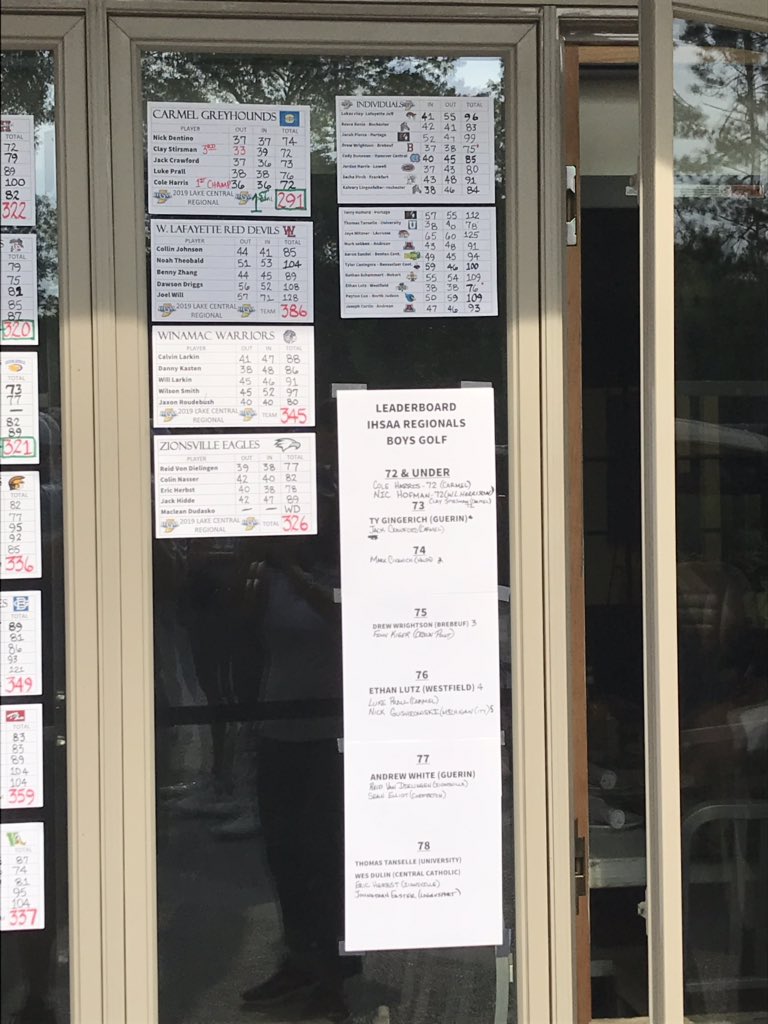 TOTAL
72
79
89
100
82
322
TOTAL
79
75
81
85
87
320
TOTAL
73
77
—
82
89
321
TOTAL
82
77
95
92
85
336
TOTAL
89
81
86
93
121
349
TOTAL
83
85
89
104
104
359
TOTAL
87
74
81
95
104
337
CARMEL GREYHOUNDS
PLAYER OUT IN TOTAL
Nick Dentino 37 37 74
Clay Stirsman 3RD 33 39 72
Jack Crawford 37 36 73
Luke Prall 38 38 76
Cole Harris 1ST CHAMP 36 36 72
2019 LAKE CENTRAL REGIONAL 1ST 291
W. LAFAYETTE RED DEVILS
PLAYER OUT IN TOTAL
Collin Johnsen 44 41 85
Noah Theobald 51 53 104
Benny Zhang 44 45 89
Dawson Driggs 56 52 108
Joel Will 57 71 128
2019 LAKE CENTRAL REGIONAL TEAM 386
WINAMAC WARRIORS
PLAYER OUT IN TOTAL
Calvin Larkin 41 47 88
Danny Kasten 38 48 86
Will Larkin 45 46 91
Wilson Smith 45 52 97
Jaxon Roudebush 40 40 80
2019 LAKE CENTRAL REGIONAL TEAM 345
ZIONSVILLE EAGLES
PLAYER OUT IN TOTAL
Reid Von Dielingen 39 38 77
Colin Nasser 42 40 82
Eric Herbst 40 38 78
Jack Hidde 42 47 89
Maclean Dudasko — — WD
2019 LAKE CENTRAL REGIONAL TOTAL 326
INDIVIDUALS IN OUT TOTAL
Lafayette Jeff 41 55 96
Rochester 42 41 83
Portage 52 47 99
Drew Wrightson - Brebeuf 37 38 75
Hanover Central 40 45 85
Lowell 37 43 80
Zache Pirch - Frankfort 43 48 91
Rochester 38 46 84
Portage 57 55 112
Thomas Tanselle - University 38 40 78
65 60 125
43 48 91
Benton Cent. 49 45 94
59 46 100
55 54 109
Ethan Lutz - Westfield 38 38 76
North Judson 50 59 109
Joseph Curtis - Andrean 47 46 93
LEADERBOARD
IHSAA REGIONALS
BOYS GOLF
72 & UNDER
COLE HARRIS - 72 (CARMEL)
NIC HOFMAN - 72 (W.L. HARRISON)
CLAY STIRSMAN (CARMEL) 72
73
TY GINGERICH (GUERIN)
JACK CRAWFORD (CARMEL)
74
75
DREW WRIGHTSON (BREBEUF) 3
(CROWN POINT)
76
ETHAN LUTZ (WESTFIELD) 4
LUKE PRALL (CARMEL)
NICK (MICHIGAN CITY) 5
77
ANDREW WHITE (GUERIN)
REID VON DIELINGEN (ZIONSVILLE)
SEAN ELLIOT
78
THOMAS TANSELLE (UNIVERSITY)
WES DULIN (CENTRAL CATHOLIC)
ERIC HERBST (ZIONSVILLE)
(LOGANSPORT)